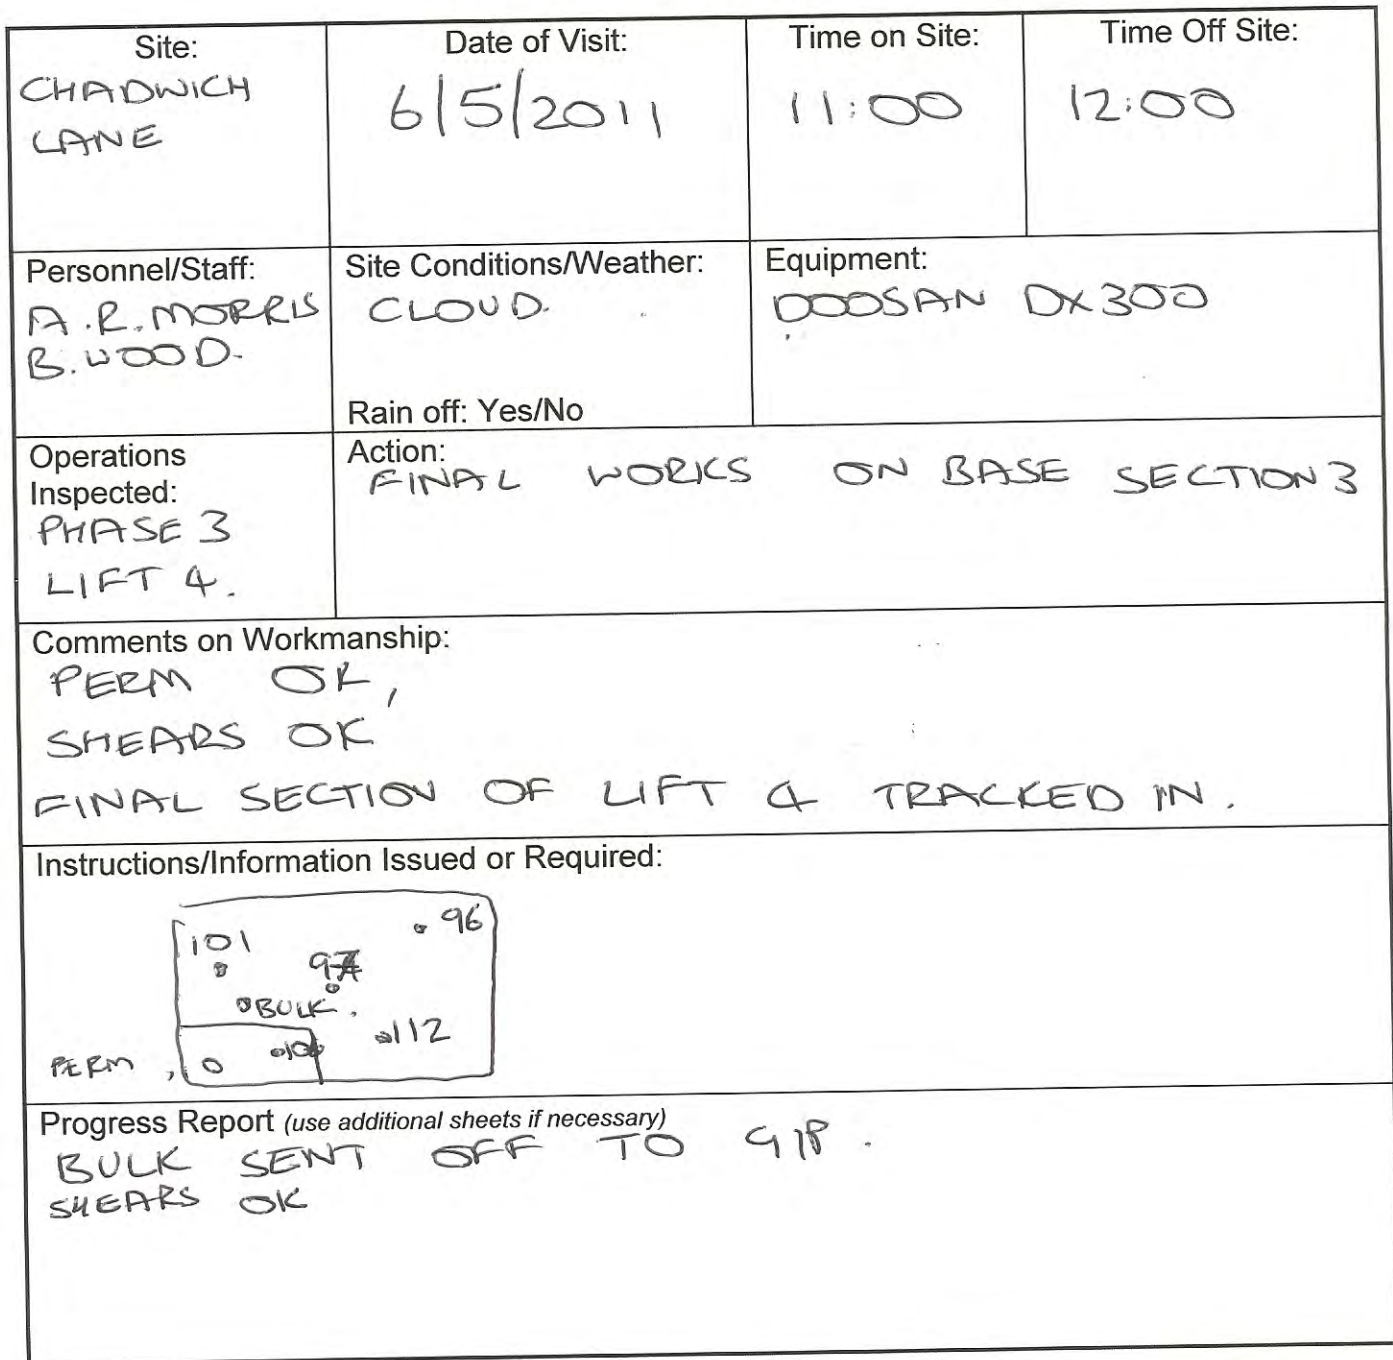 Site:
CHADWICH
LANE
Date of Visit:
6/5/2011
Time on Site:
11:00
Time Off Site:
12:00
Personnel/Staff:
A.R. MORRIS
B. WOOD.
Site Conditions/Weather:
CLOUD.
Rain off: Yes/No
Equipment:
DOOSAN DX300
Operations
Inspected:
PHASE 3
LIFT 4.
Action:
FINAL WORKS ON BASE SECTION 3
Comments on Workmanship:
PERM OK,
SHEARS OK
FINAL SECTION OF LIFT 4 TRACKED IN.
Instructions/Information Issued or Required:
96
101
BULK.
112
PERM,
Progress Report (use additional sheets if necessary)
BULK SENT OFF TO GIP.
SHEARS OK